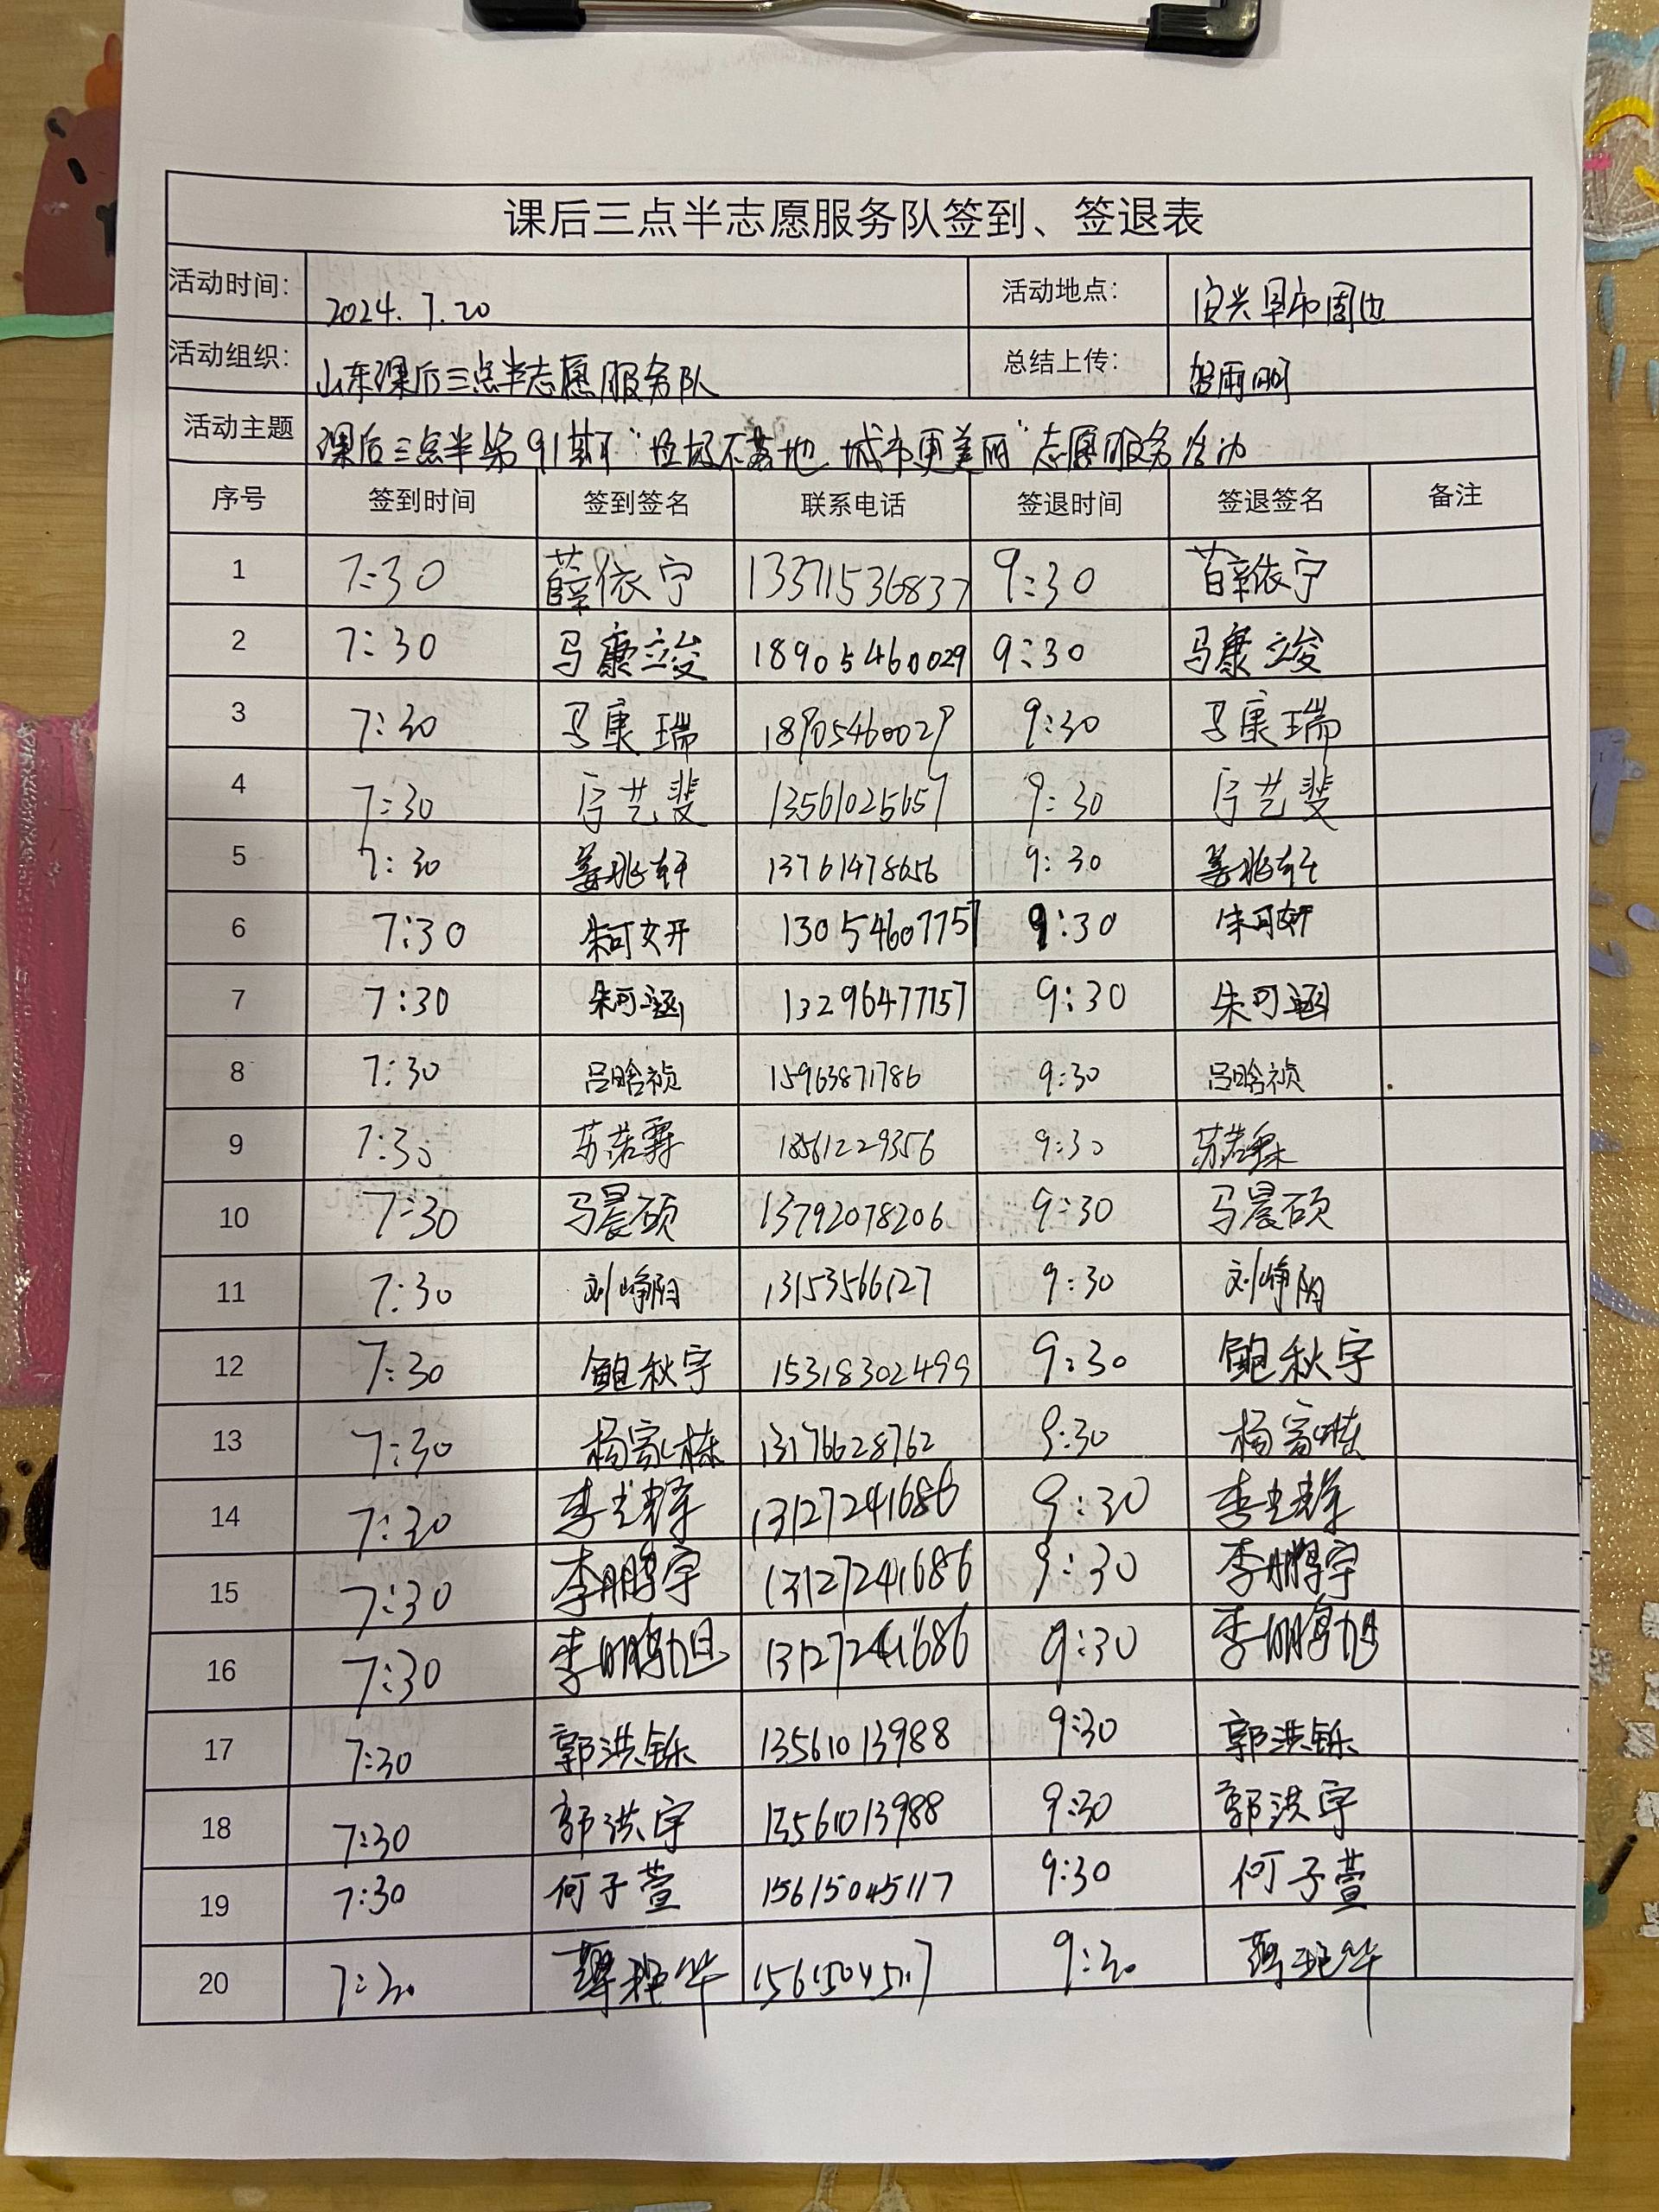 课后三点半志愿服务队签到、签退表
活动时间： 2024.7.20 活动地点： 安兴早市周边
活动组织： 山东课后三点半志愿服务队 总结上传：
活动主题 课后三点半第91期"垃圾不落地 城市更美丽"志愿服务活动
序号 签到时间 签到签名 联系电话 签退时间 签退签名 备注
1 7:30 薛依宁 13371536837 9:30 薛依宁
2 7:30 马康立俊 18905460029 9:30 马康立俊
3 7:30 马康瑞 18905460029 9:30 马康瑞
4 7:30 艺斐 13561025657 9:30 艺斐
5 7:30 姜兆轩 13761478656 9:30 姜兆轩
6 7:30 朱可妍 13054607757 9:30 朱可妍
7 7:30 朱可涵 13296477757 9:30 朱可涵
8 7:30 吕晗祯 15963871786 9:30 吕晗祯
9 7:30 苏若霖 18561229356 9:30 苏若霖
10 7:30 马晨硕 13792078206 9:30 马晨硕
11 7:30 刘峥阳 13153566127 9:30 刘峥阳
12 7:30 鲍秋宇 15318302499 9:30 鲍秋宇
13 7:30 杨富栋 13176628762 9:30 杨富栋
14 7:30 李光辉 13127241686 9:30 李光辉
15 7:30 李鹏宇 13127241686 9:30 李鹏宇
16 7:30 李鹏旭 13127241686 9:30 李鹏旭
17 7:30 郭洪铄 13561013988 9:30 郭洪铄
18 7:30 郭洪宇 13561013988 9:30 郭洪宇
19 7:30 何子萱 15615045117 9:30 何子萱
20 7:30 15615045117 9:30